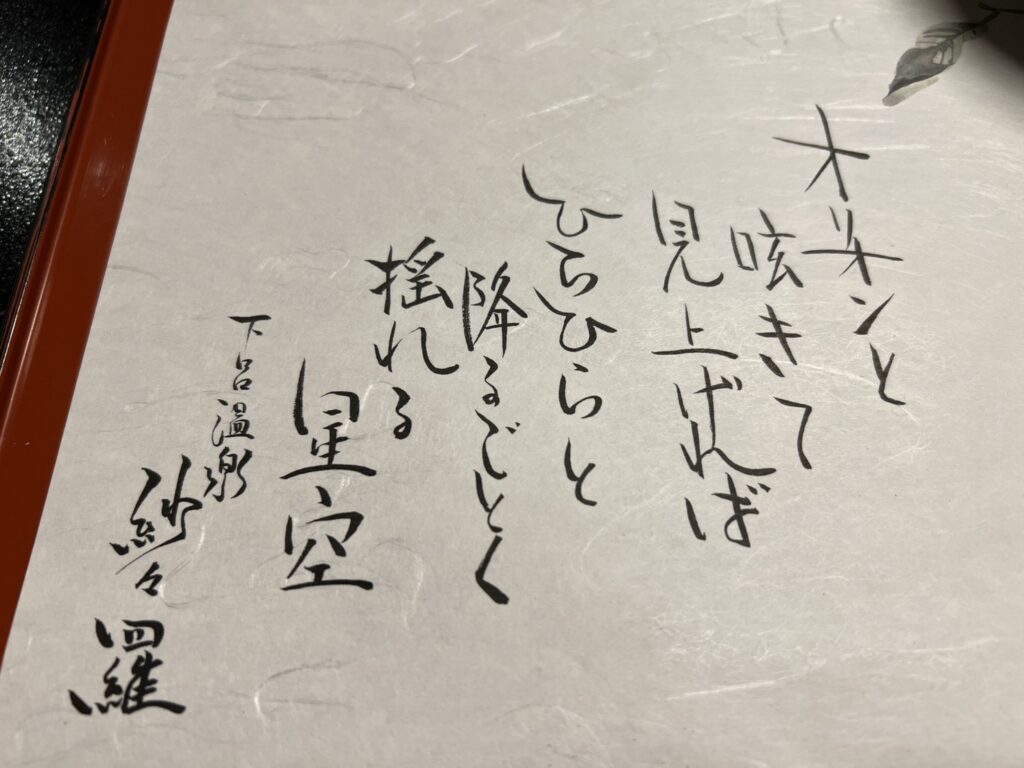 オリオンと
呟きて
見上げれば
ひらひらと
降るごとく
揺れる
星空
下呂温泉
紗々羅